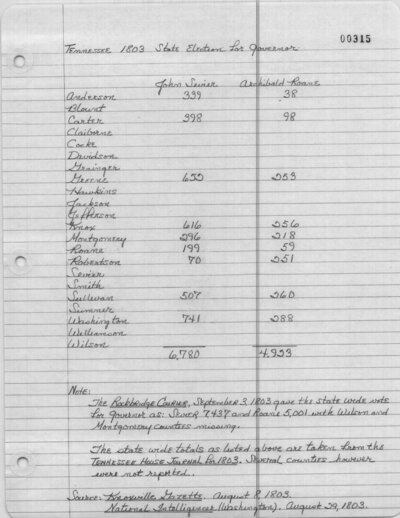 00315
Tennessee 1803 State Election for Governor
John Sevier Archibald Roane
Anderson 339 38
Blount
Carter 398 98
Claiborne
Cocke
Davidson
Grainger
Greene 653 253
Hawkins
Jackson
Jefferson
Knox 616 256
Montgomery 296 218
Roane 199 59
Robertson 70 251
Sevier
Smith
Sullivan 507 260
Sumner
Washington 741 288
Williamson
Wilson
6,780 4,923
Note:
The Rockbridge Courier, September 3, 1803 gave the state wide vote
for governor as: Sevier 7,437 and Roane 5,001 with Wilson and
Montgomery counties missing.
The state wide totals as listed above are taken from the
Tennessee House Journal for 1803. Several counties however
were not reported.
Source: Knoxville Gazette. August 8, 1803.
National Intelligencer (Washington). August 29, 1803.